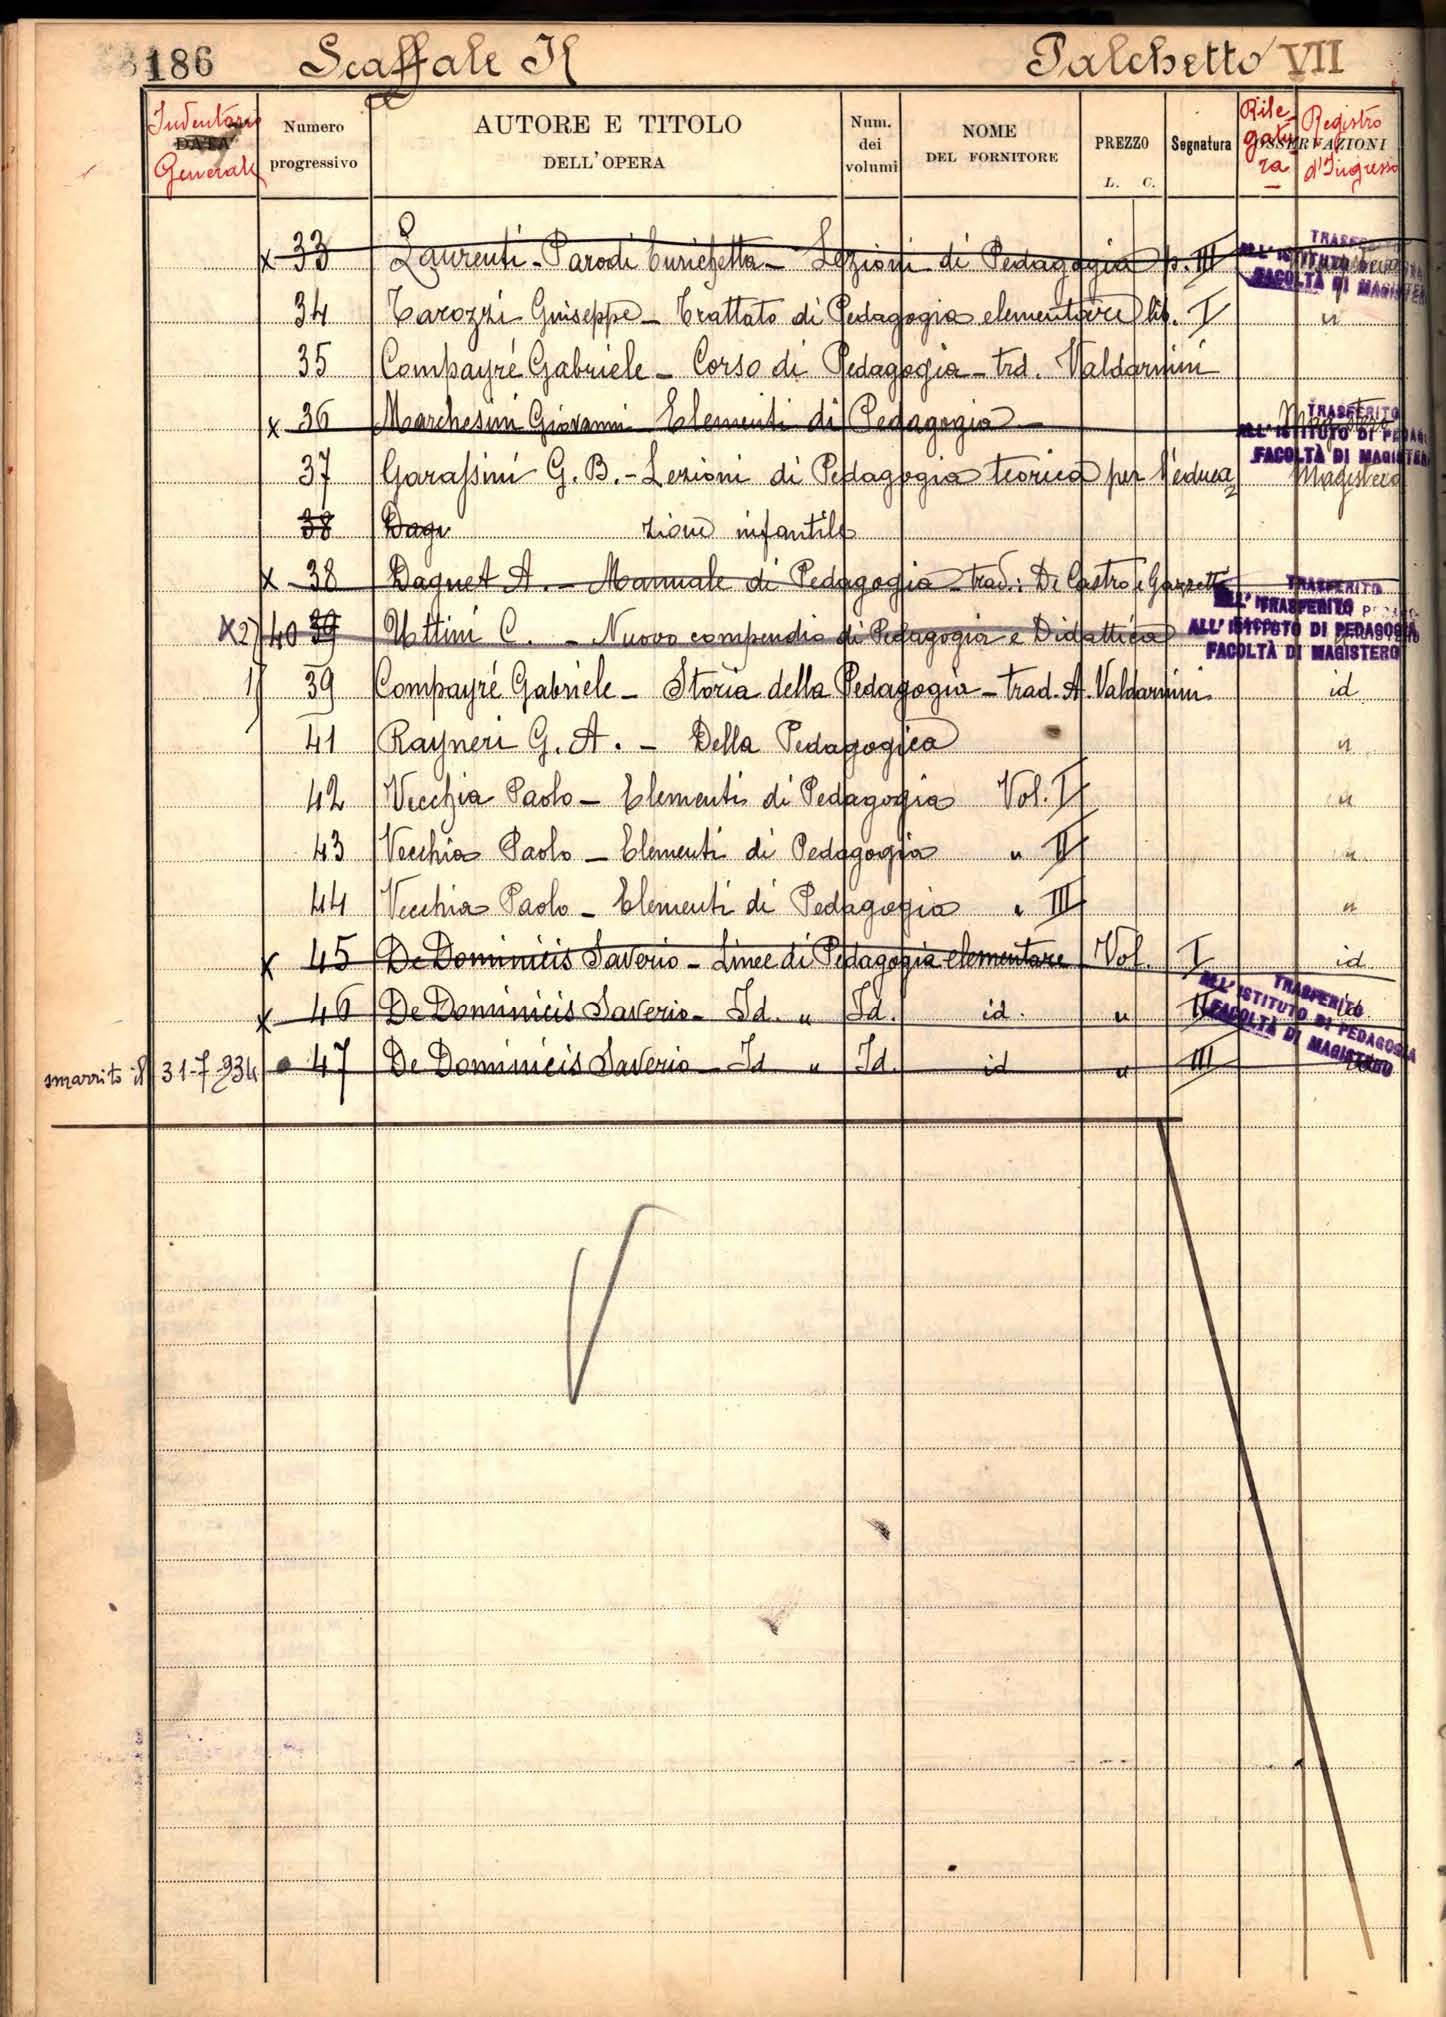 186 Scaffale K Palchetto VII
Inventario Generale
DATA
Numero progressivo
AUTORE E TITOLO
DELL'OPERA
Num. dei volumi
NOME
DEL FORNITORE
PREZZO
L. C.
Segnatura
Rilegatura
OSSERVAZIONI
Registro d'Ingresso
x 33 Laurenti-Parodi Enrichetta - Lezioni di Pedagogia p. III
TRASFERITO
ALL'ISTITUTO DI PEDAGOGIA
FACOLTÀ DI MAGISTERO
34 Tarozzi Giuseppe - Trattato di Pedagogia elementare lib. I "
35 Compayré Gabriele - Corso di Pedagogia - trd. Valdarnini
x 36 Marchesini Giovanni Elementi di Pedagogia - Magistero
TRASFERITO
ALL'ISTITUTO DI PEDAGOGIA
FACOLTÀ DI MAGISTERO
37 Garassini G. B. - Lezioni di Pedagogia teorica per l'educa= Magistero
38 Dagu zione infantile
x 38 Daguet A. - Manuale di Pedagogia trad: De Castro e Garzetti
TRASFERITO
x 2) 40 39 Uttini C. - Nuovo compendio di Pedagogia e Didattica
TRASFERITO
ALL'ISTITUTO DI PEDAGOGIA
FACOLTÀ DI MAGISTERO
1) 39 Compayré Gabriele - Storia della Pedagogia - trad. A. Valdarnini id
41 Rayneri G. A. - Della Pedagogica "
42 Vecchia Paolo - Elementi di Pedagogia Vol. I "
43 Vecchia Paolo - Elementi di Pedagogia " II "
44 Vecchia Paolo - Elementi di Pedagogia " III "
x 45 De Dominicis Saverio - Linee di Pedagogia elementare Vol. I id
x 46 De Dominicis Saverio - Id. " Id. id. " II id
TRASFERITO
ALL'ISTITUTO DI PEDAGOGIA
FACOLTÀ DI MAGISTERO
smarrito il 31-7-934 47 De Dominicis Saverio - Id " Id. id " III